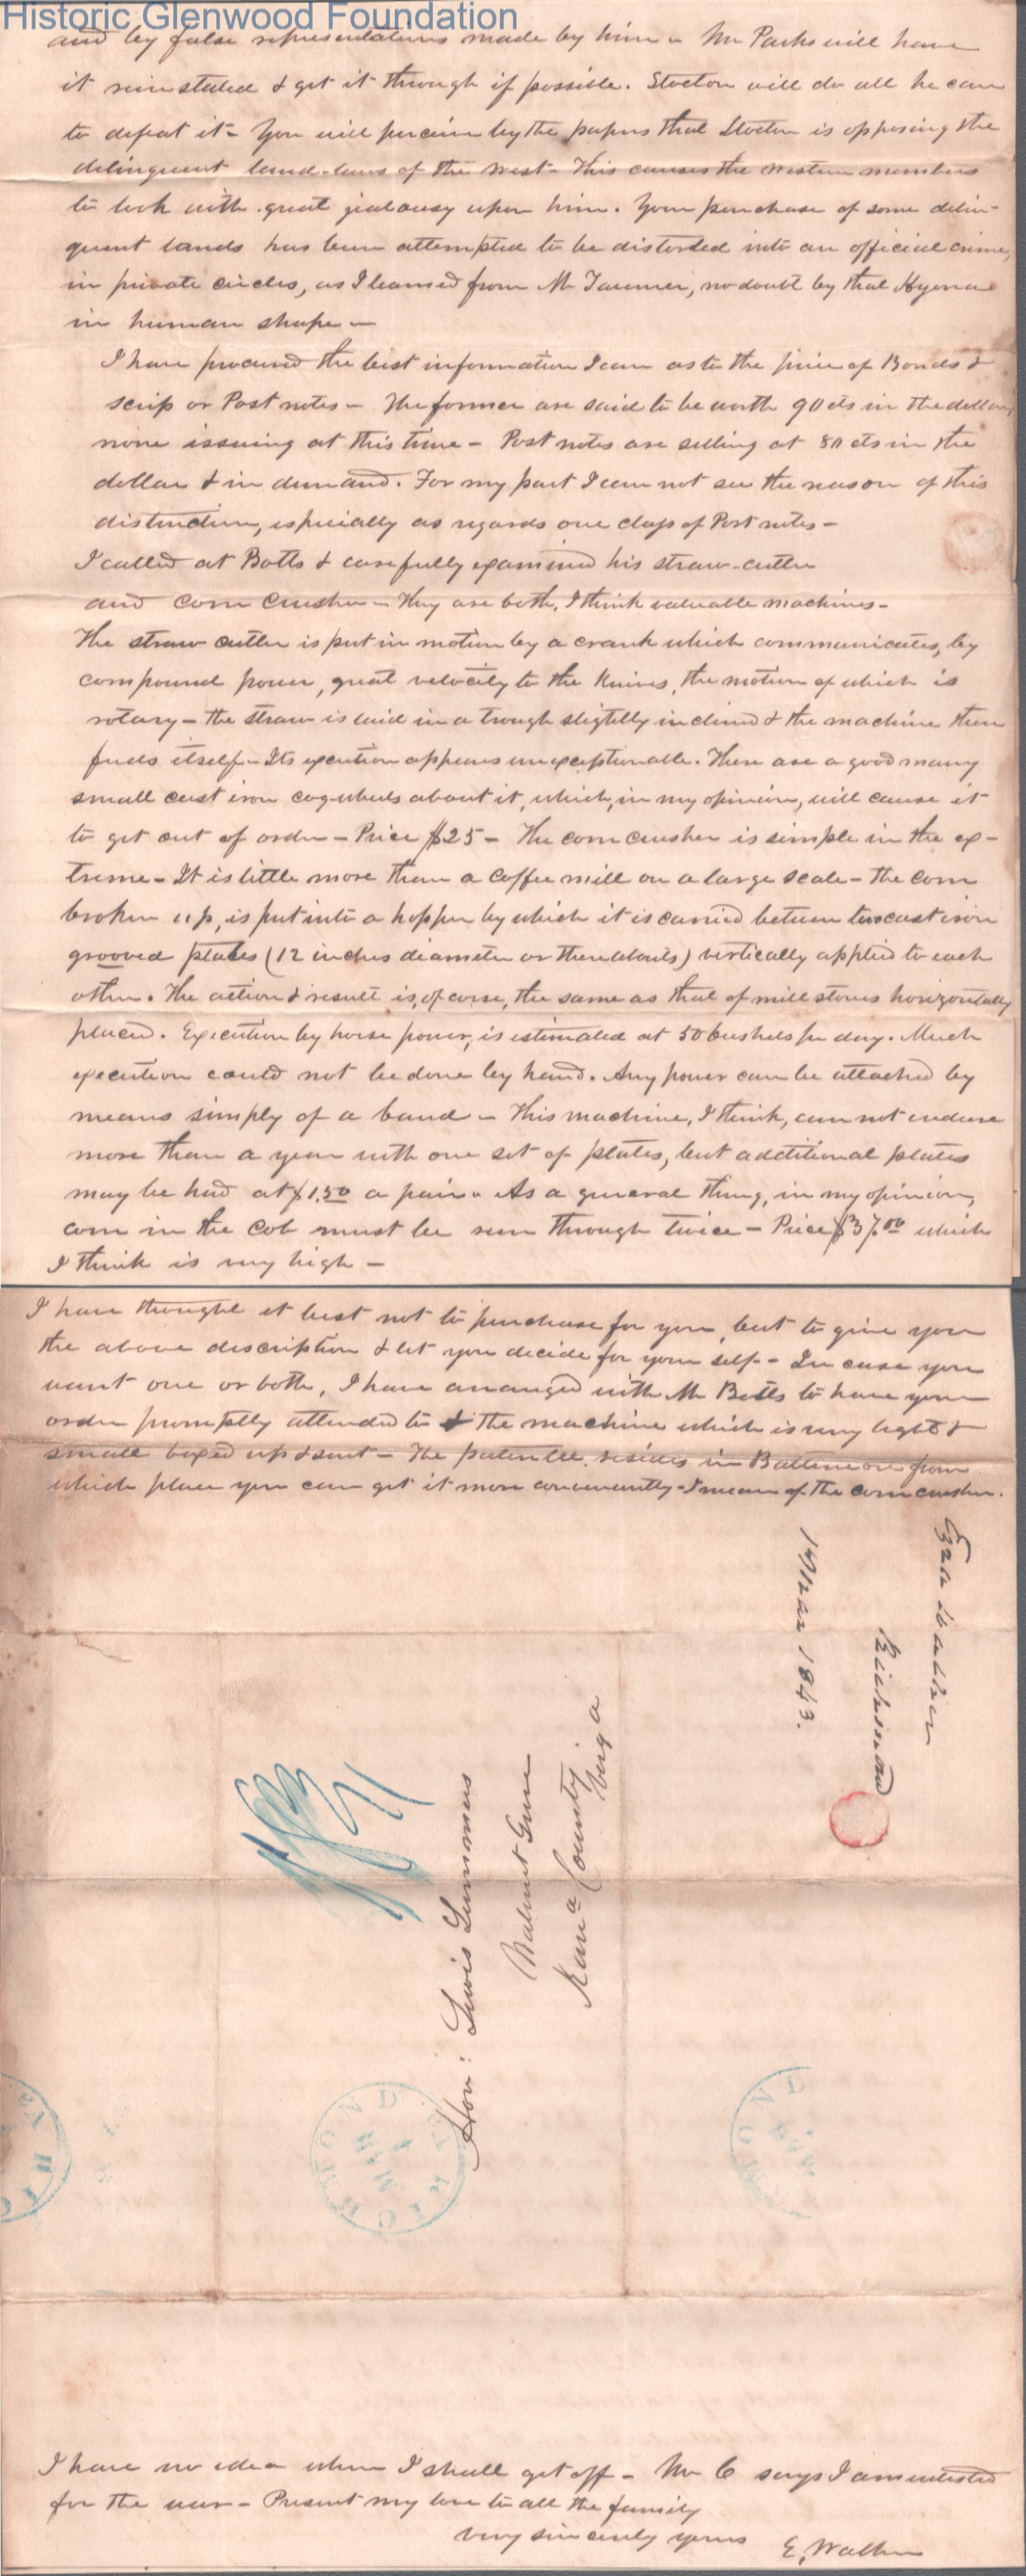 Historic Glenwood Foundation
and by false representations made by him - Mr Parks will have
it reinstated & get it through if possible. Stocton will do all he can
to defeat it - You will perceive by the papers that Stocton is opposing the
delinquent land-laws of the west - This causes the western members
to look with great jealousy upon him. Your purchase of some delin-
quent lands has been attempted to be distorted into an official crime,
in private circles, as I learned from Mr no doubt by that Hyena
in human shape -
I have procured the best information I can as to the price of Bonds &
scrip or Post notes - The former are said to be worth 90 cts in the dollar,
none issuing at this time - Post notes are selling at 80 cts in the
dollar & in demand. For my part I can not see the reason of this
distinction, especially as regards one class of Post notes -
I called at Botts & carefully examined his straw-cutter
and corn crusher - They are both, I think valuable machines -
The straw cutter is put in motion by a crank which communicates, by
compound power, great velocity to the knives, the motion of which is
rotary - the straw is laid in a trough slightly inclined & the machine then
feeds itself - Its execution appears unexceptionable. There are a good many
small cast iron cog-wheels about it, which, in my opinion, will cause it
to get out of order - Price $25 - The corn crusher is simple in the ex-
treme - It is little more than a coffee mill on a large scale - the corn
broken up, is put into a hopper by which it is carried between two cast iron
grooved plates (12 inches diameter or thereabouts) vertically applied to each
other. The action & result is, of corse, the same as that of mill stones horizontally
placed. Execution by horse power, is estimated at 50 bushels per day. Much
execution could not be done by hand. Any power can be attached by
means simply of a band - This machine, I think, can not endure
more than a year with one set of plates, but additional plates
may be had at $1.50 a pair - As a general thing, in my opinion,
corn in the cob must be run through twice - Price $37.00 which
I think is very high -
I have thought it best not to purchase for you, but to give you
the above description & let you decide for your self - In case you
want one or both, I have arranged with Mr Botts to have your
order promptly attended to & the machine which is very light &
small boxed up & sent - The patentee resides in Baltimore from
which place you can get it more conveniently - I mean of the corn crusher.
Ezra Walker
Richmond
1 Mar 1843.
Hon: Lewis Summers
Walnut Grove
Kana County
Virga
RICHMOND VA
MAR
RICHMOND
MAR
I have no idea when I shall get off - Mr C says I am enlisted
for the war - Present my love to all the family
very sincerely yours E, Walker